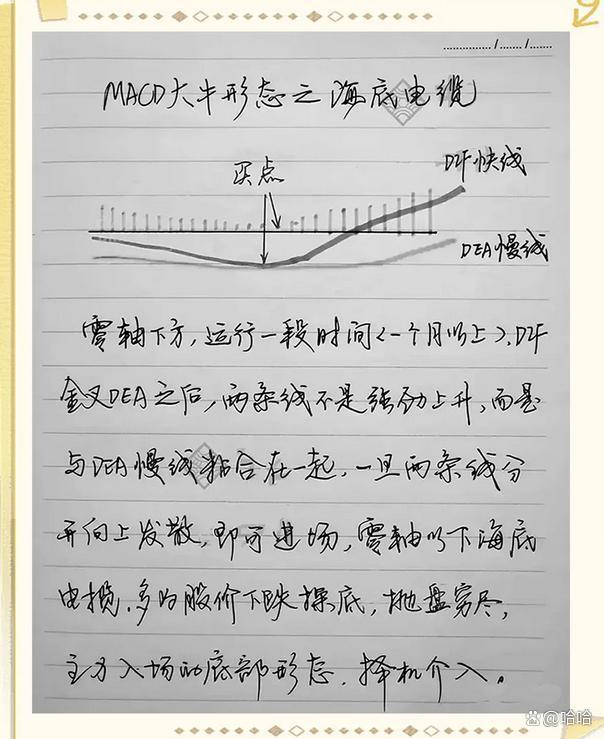 ............... / ....... / .......
MACD大牛形态之海底电缆
买点
DIF快线
DEA慢线
零轴下方，运行一段时间<一个月以上>，DIF
金叉DEA之后，两条线不是强劲上升，而是
与DEA慢线粘合在一起，一旦两条线分
开向上发散，即可进场，零轴以下海底
电揽，多为股价下跌探底，抛盘穷尽，
主力入场的底部形态，择机介入。
@哈哈